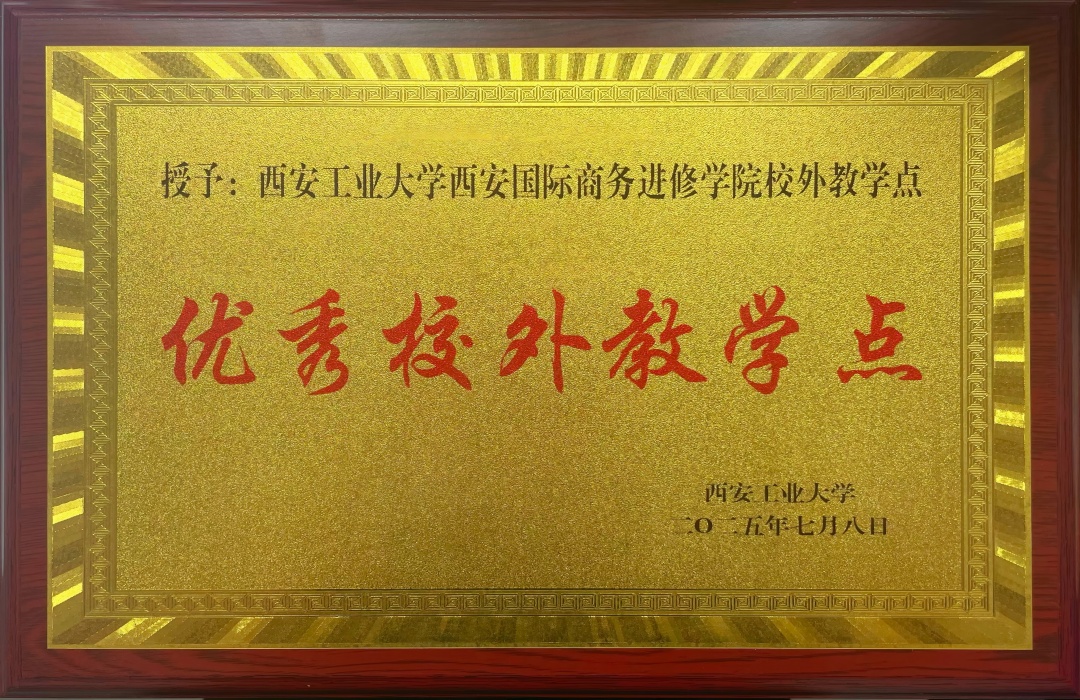 授予：西安工业大学西安国际商务进修学院校外教学点
优秀校外教学点
西安工业大学
二〇二五年七月八日